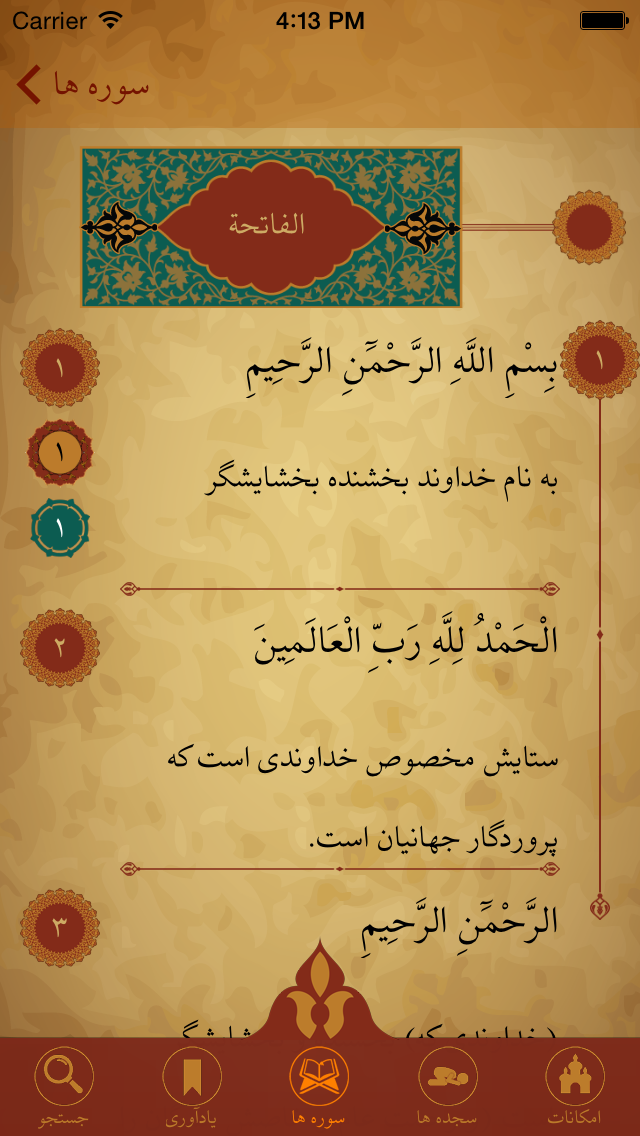 Carrier 4:13 PM
سوره ها
الفاتحة
١
بِسْمِ اللَّهِ الرَّحْمَٰنِ الرَّحِيمِ
١
١
به نام خداوند بخشنده بخشایشگر
١
الْحَمْدُ لِلَّهِ رَبِّ الْعَالَمِينَ
٢
ستایش مخصوص خداوندی است که
پروردگار جهانیان است.
الرَّحْمَٰنِ الرَّحِيمِ
٣
امکانات
سجده ها
سوره ها
یادآوری
جستجو